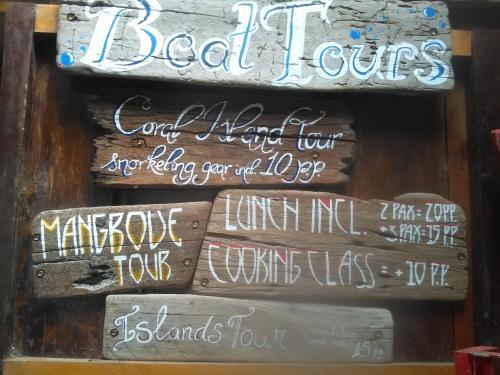 Boat Tours
Coral Island Tour
snorkeling gear incl. 10 pp
MANGROVE
TOUR
LUNCH INCL. 2 PAX = 20 P.P.
+3 PAX = 15 P.P.
COOKING CLASS = + 10 P.P.
Islands Tour
15 pp